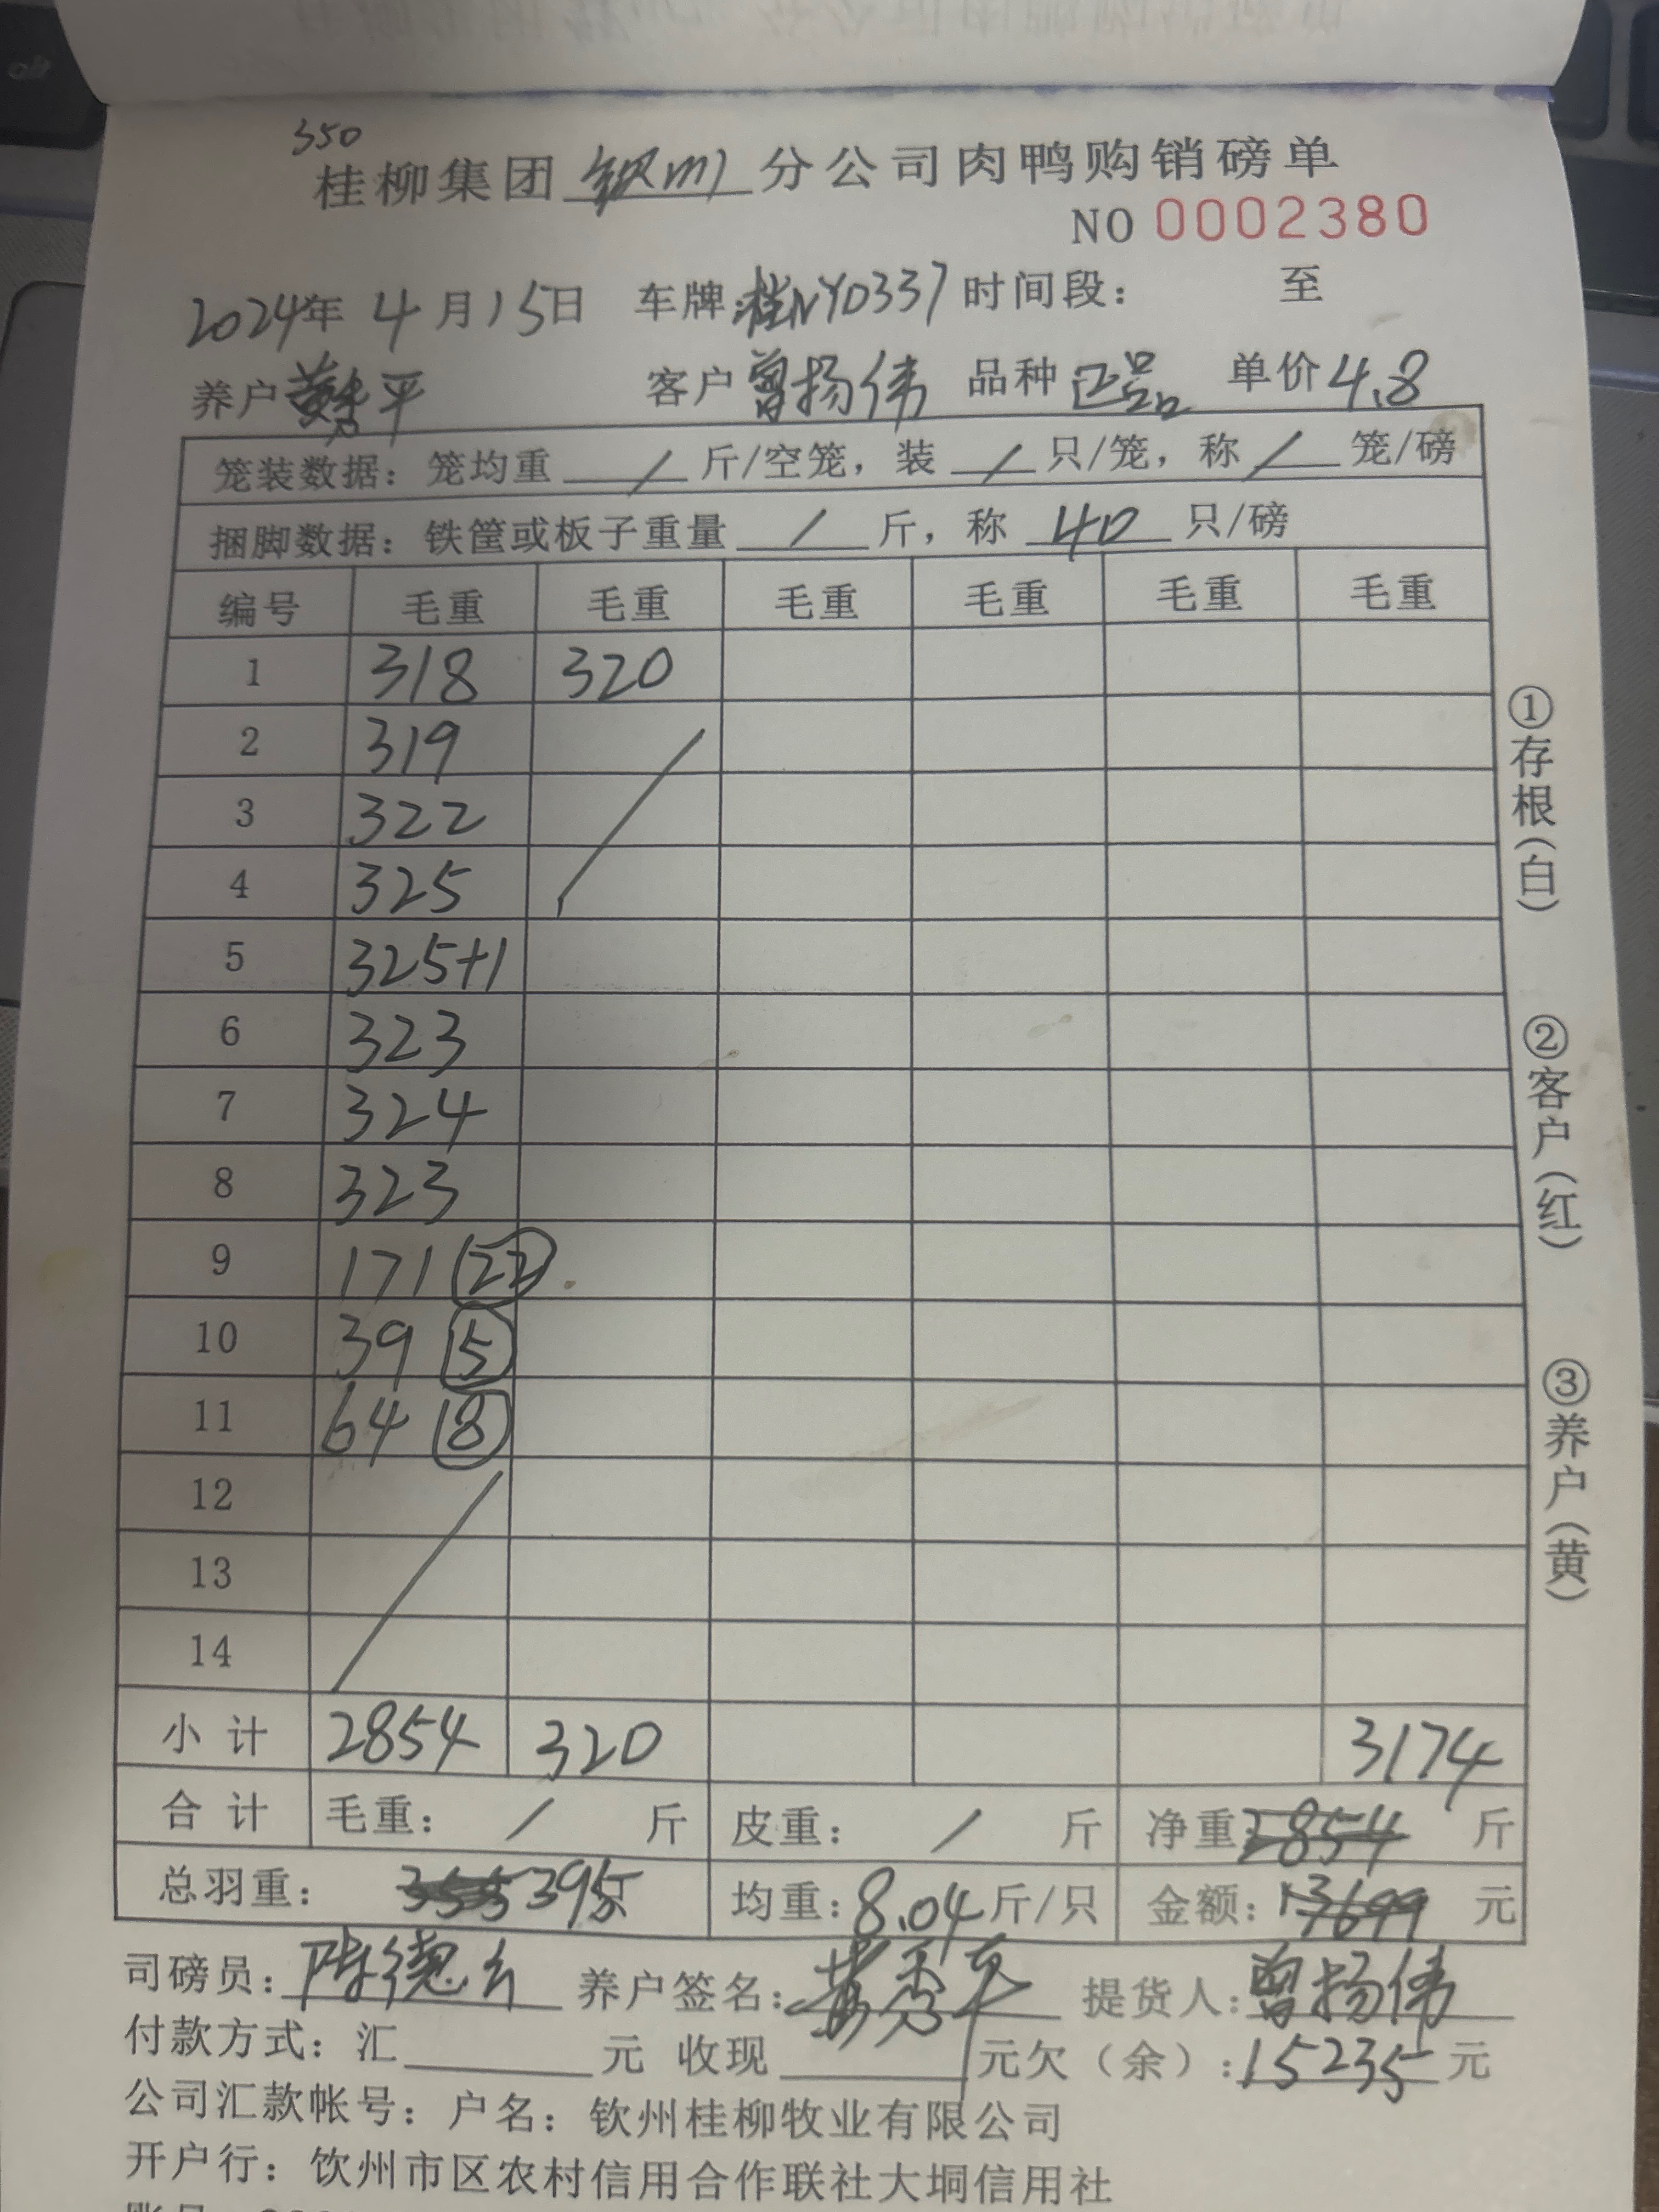 350
桂柳集团 钦州 分公司肉鸭购销磅单
NO 0002380
2024年 4月15日 车牌:桂NY0337 时间段: 至
养户 黄秀平 客户 曾扬伟 品种 正品 单价 4.8
笼装数据: 笼均重 / 斤/空笼, 装 / 只/笼, 称 / 笼/磅
捆脚数据: 铁筐或板子重量 / 斤, 称 40 只/磅
编号 毛重 毛重 毛重 毛重 毛重 毛重
1 318 320
2 319
3 322
4 325
5 325+1
6 323
7 324
8 323
9 171 22
10 39 5
11 64 8
12
13
14
小计 2854 320 3174
合计 毛重: / 斤 皮重: / 斤 净重: 2854 斤
总羽重: 355 395 只 均重: 8.04 斤/只 金额: 13699 元
司磅员: 陈德 养户签名: 黄秀平 提货人: 曾扬伟
付款方式: 汇 元 收现 元欠(余): 15235 元
公司汇款帐号: 户名: 钦州桂柳牧业有限公司
开户行: 钦州市区农村信用合作联社大垌信用社
①存根(白)
②客户(红)
③养户(黄)